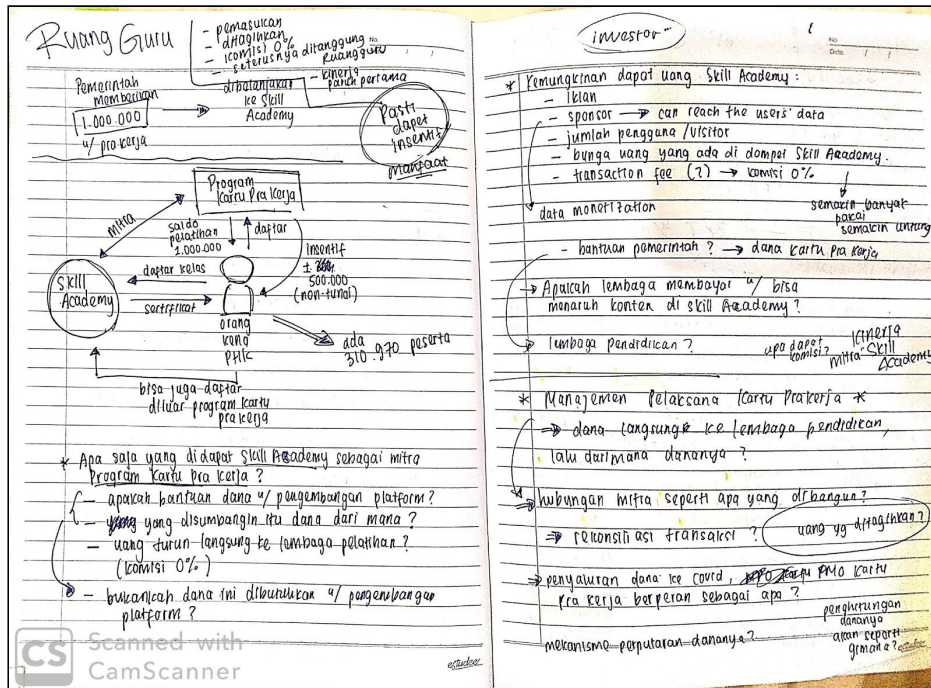 Ruang Guru
- pemasukan
- ditagihkan
- komisi 0%
- seterusnya ditanggung Ruangguru
- kinerja paruh pertama
Pemerintah
memberikan
1.000.000
u/ prakerja
dibelanjakan
ke Skill
Academy
Pasti
dapet
insentif
manfaat
Program
Kartu Pra Kerja
mitra
saldo
pelatihan
1.000.000
daftar
insentif
±
500.000
(non-tunai)
Skill
Academy
daftar kelas
sertifikat
orang
kena
PHK
ada
310.970 peserta
bisa juga daftar
diluar program kartu
prakerja
* Apa saja yang didapat Skill Academy sebagai mitra
Program Kartu Pra Kerja ?
- apakah bantuan dana u/ pengembangan platform ?
- yang disumbangin itu dana dari mana ?
- uang turun langsung ke lembaga pelatihan ?
(komisi 0%)
- bukankah dana ini dibutuhkan u/ pengembangan
platform ?
CS Scanned with
CamScanner
estudee
investor
No.
Date.
* Kemungkinan dapat uang Skill Academy :
- Iklan
- sponsor → can reach the users' data
- jumlah pengguna / visitor
- bunga uang yang ada di dompet Skill Academy.
- transaction fee (?) → komisi 0%
semakin banyak
pakai
semakin untung
data monetization
- bantuan pemerintah ? → dana kartu pra kerja
→ Apakah lembaga membayar u/ bisa
menaruh konten di skill Academy ?
lembaga pendidikan ?
apa dapat
komisi?
kinerja
mitra Skill
Academy
* Manajemen Pelaksana Kartu Prakerja *
⇒ dana langsung ke lembaga pendidikan,
lalu darimana dananya ?
⇒ hubungan mitra seperti apa yang dibangun ?
⇒ rekonsiliasi transaksi ?
uang yg ditagihkan ?
⇒ penyaluran dana ke covid, PMO Kartu
Pra Kerja berperan sebagai apa ?
mekanisme perputaran dananya ?
penghitungan
dananya
akan seperti
gimana ?
estudee